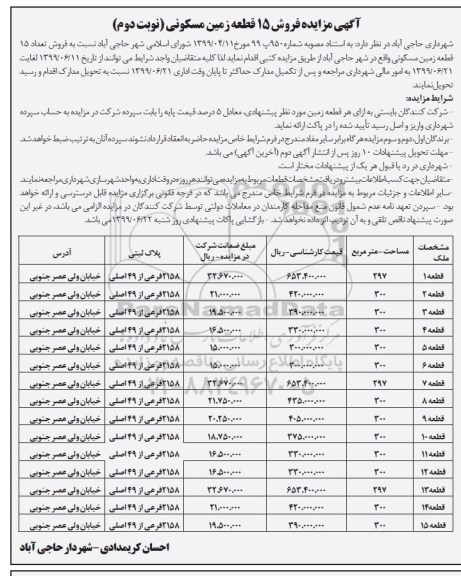 آگهی مزایده فروش ۱۵ قطعه زمین مسکونی (نوبت دوم)
شهرداری حاجی آباد در نظر دارد: به استناد مصوبه شماره ۹۵۰پ ۹۹ مورخ ۱۳۹۹/۰۴/۱۱ شورای اسلامی شهر حاجی آباد نسبت به فروش تعداد ۱۵
قطعه زمین مسکونی واقع در شهر حاجی آباد از طریق مزایده کتبی اقدام نماید لذا کلیه متقاضیان واجد شرایط می توانند از تاریخ ۱۳۹۹/۰۶/۱۱ لغایت
۱۳۹۹/۰۶/۲۱ به امور مالی شهرداری مراجعه و پس از تکمیل مدارک حداکثر تا پایان وقت اداری ۱۳۹۹/۰۶/۲۱ نسبت به تحویل مدارک اقدام و رسید
تحویل نمایند.
شرایط مزایده:
- شرکت کنندگان بایستی به ازای هر قطعه زمین مورد نظر پیشنهادی، معادل ۵ درصد قیمت پایه را بابت سپرده شرکت در مزایده به حساب سپرده
شهرداری واریز و اصل رسید تأیید شده را در پاکت ارائه نماید.
- برندگان اول، دوم و سوم مزایده هرگاه برابر سایر مفاد مندرج در فرم شرایط خاص مزایده حاضر به انعقاد قرارداد نشوند سپرده آنان به ترتیب ضبط خواهد شد.
- مهلت تحویل پیشنهادات ۱۰ روز پس از انتشار آگهی دوم (آخرین آگهی) می باشد.
- شهرداری در رد یا قبول هر یک از پیشنهادات مختار است.
- متقاضیان جهت کسب اطلاعات بیشتر و دریافت مشخصات قطعات مربوط به مزایده می توانند هر روزه در وقت اداری به واحد شهرسازی شهرداری مراجعه نمایند.
- سایر اطلاعات و جزئیات مربوط به مزایده در فرم شرایط خاص مندرج می باشد که در فرجه قانونی برگزاری مزایده قابل دسترسی و ارائه خواهد
بود. - سپردن تعهد نامه عدم شمول قانون منع مداخله کارمندان در معاملات دولتی توسط شرکت کنندگان در مزایده الزامی می باشد، در غیر این
صورت پیشنهاد ناقص تلقی و به آن ترتیب اثر داده نخواهد شد. - بازگشایی پاکات پیشنهادی روز شنبه ۱۳۹۹/۰۶/۲۲ می باشد.
مشخصات ملک مساحت-متر مربع قیمت کارشناسی-ریال مبلغ ضمانت شرکت در مزایده- ریال پلاک ثبتی آدرس
قطعه۱ ۲۹۷ ۶۵۳.۴۰۰.۰۰۰ ۳۲.۶۷۰.۰۰۰ ۲۱۵۸فرعی از ۴۹ اصلی خیابان ولی عصر جنوبی
قطعه۲ ۳۰۰ ۴۲۰.۰۰۰.۰۰۰ ۲۱.۰۰۰.۰۰۰ ۲۱۵۸فرعی از ۴۹ اصلی خیابان ولی عصر جنوبی
قطعه ۳ ۳۰۰ ۳۹۰.۰۰۰.۰۰۰ ۱۹.۵۰۰.۰۰۰ ۲۱۵۸فرعی از ۴۹ اصلی خیابان ولی عصر جنوبی
قطعه ۴ ۳۰۰ ۳۳۰.۰۰۰.۰۰۰ ۱۶.۵۰۰.۰۰۰ ۲۱۵۸فرعی از ۴۹ اصلی خیابان ولی عصر جنوبی
قطعه ۵ ۳۰۰ ۳۰۰.۰۰۰.۰۰۰ ۱۵.۰۰۰.۰۰۰ ۲۱۵۸فرعی از ۴۹ اصلی خیابان ولی عصر جنوبی
قطعه ۶ ۳۰۰ ۳۰۰.۰۰۰.۰۰۰ ۱۵.۰۰۰.۰۰۰ ۲۱۵۸فرعی از ۴۹ اصلی خیابان ولی عصر جنوبی
قطعه ۷ ۲۹۷ ۶۵۳.۴۰۰.۰۰۰ ۳۲.۶۷۰.۰۰۰ ۲۱۵۸فرعی از ۴۹ اصلی خیابان ولی عصر جنوبی
قطعه ۸ ۳۰۰ ۴۳۵.۰۰۰.۰۰۰ ۲۱.۷۵۰.۰۰۰ ۲۱۵۸فرعی از ۴۹ اصلی خیابان ولی عصر جنوبی
قطعه ۹ ۳۰۰ ۴۰۵.۰۰۰.۰۰۰ ۲۰.۲۵۰.۰۰۰ ۲۱۵۸فرعی از ۴۹ اصلی خیابان ولی عصر جنوبی
قطعه ۱۰ ۳۰۰ ۳۷۵.۰۰۰.۰۰۰ ۱۸.۷۵۰.۰۰۰ ۲۱۵۸فرعی از ۴۹ اصلی خیابان ولی عصر جنوبی
قطعه ۱۱ ۳۰۰ ۳۳۰.۰۰۰.۰۰۰ ۱۶.۵۰۰.۰۰۰ ۲۱۵۸فرعی از ۴۹ اصلی خیابان ولی عصر جنوبی
قطعه ۱۲ ۳۰۰ ۳۳۰.۰۰۰.۰۰۰ ۱۶.۵۰۰.۰۰۰ ۲۱۵۸فرعی از ۴۹ اصلی خیابان ولی عصر جنوبی
قطعه۱۳ ۲۹۷ ۶۵۳.۴۰۰.۰۰۰ ۳۲.۶۷۰.۰۰۰ ۲۱۵۸فرعی از ۴۹ اصلی خیابان ولی عصر جنوبی
قطعه۱۴ ۳۰۰ ۴۲۰.۰۰۰.۰۰۰ ۲۱.۰۰۰.۰۰۰ ۲۱۵۸فرعی از ۴۹ اصلی خیابان ولی عصر جنوبی
قطعه ۱۵ ۳۰۰ ۳۹۰.۰۰۰.۰۰۰ ۱۹.۵۰۰.۰۰۰ ۲۱۵۸فرعی از ۴۹ اصلی خیابان ولی عصر جنوبی
احسان کریمدادی - شهردار حاجی آباد